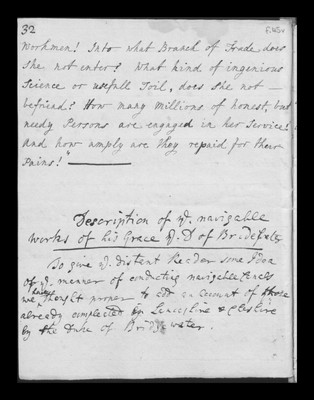 32
workmen! Into what Branch of Trade does
she not enter? What kind of ingenious
Science or usefull Toil, does she not —
befriend? How many millions of honest, but
needy Persons are engaged in her Service!
and how amply are they repaid for their
Pains!"
Description of ye. navigable
works of his Grace ye. D of Bridge
To give ye. distant Reader some Idea
of ye. manner of conducting navigable
we have thought proper to add an account of those
already compleated by Lancashire & Cheshire
by the Duke of Bridgewater.